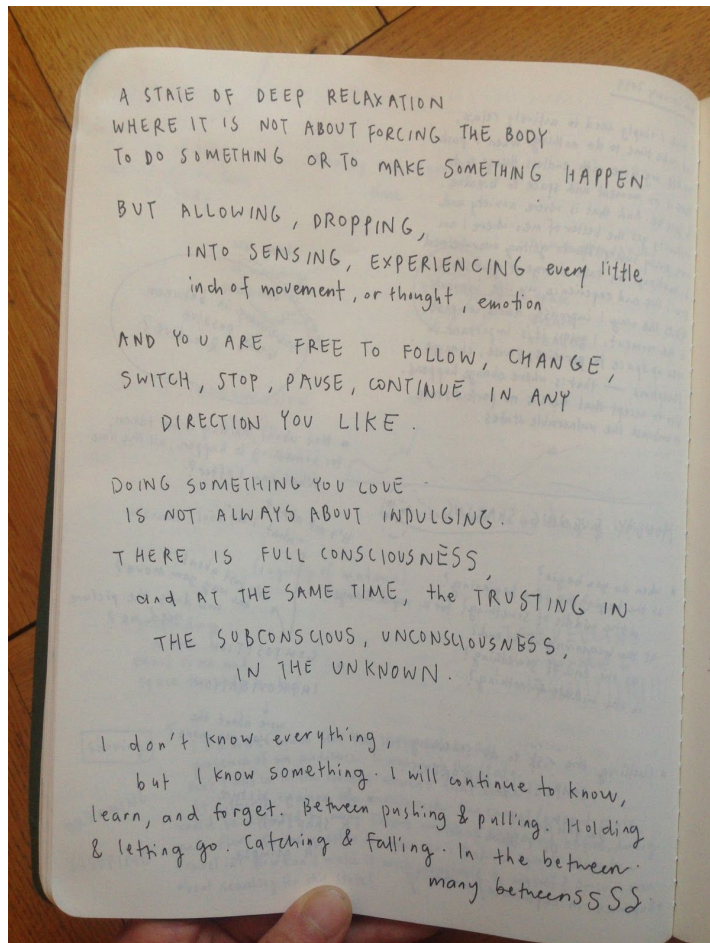 A STATE OF DEEP RELAXATION
WHERE IT IS NOT ABOUT FORCING THE BODY
TO DO SOMETHING OR TO MAKE SOMETHING HAPPEN
BUT ALLOWING, DROPPING,
INTO SENSING, EXPERIENCING every little
inch of movement, or thought, emotion
AND YOU ARE FREE TO FOLLOW, CHANGE,
SWITCH, STOP, PAUSE, CONTINUE IN ANY
DIRECTION YOU LIKE.
DOING SOMETHING YOU LOVE
IS NOT ALWAYS ABOUT INDULGING.
THERE IS FULL CONSCIOUSNESS,
and AT THE SAME TIME, the TRUSTING IN
THE SUBCONSCIOUS, UNCONSCIOUSNESS,
IN THE UNKNOWN.
I don't know everything,
but I know something. I will continue to know,
learn, and forget. Between pushing & pulling. Holding
& letting go. Catching & falling. In the between.
many betweenssSSS.